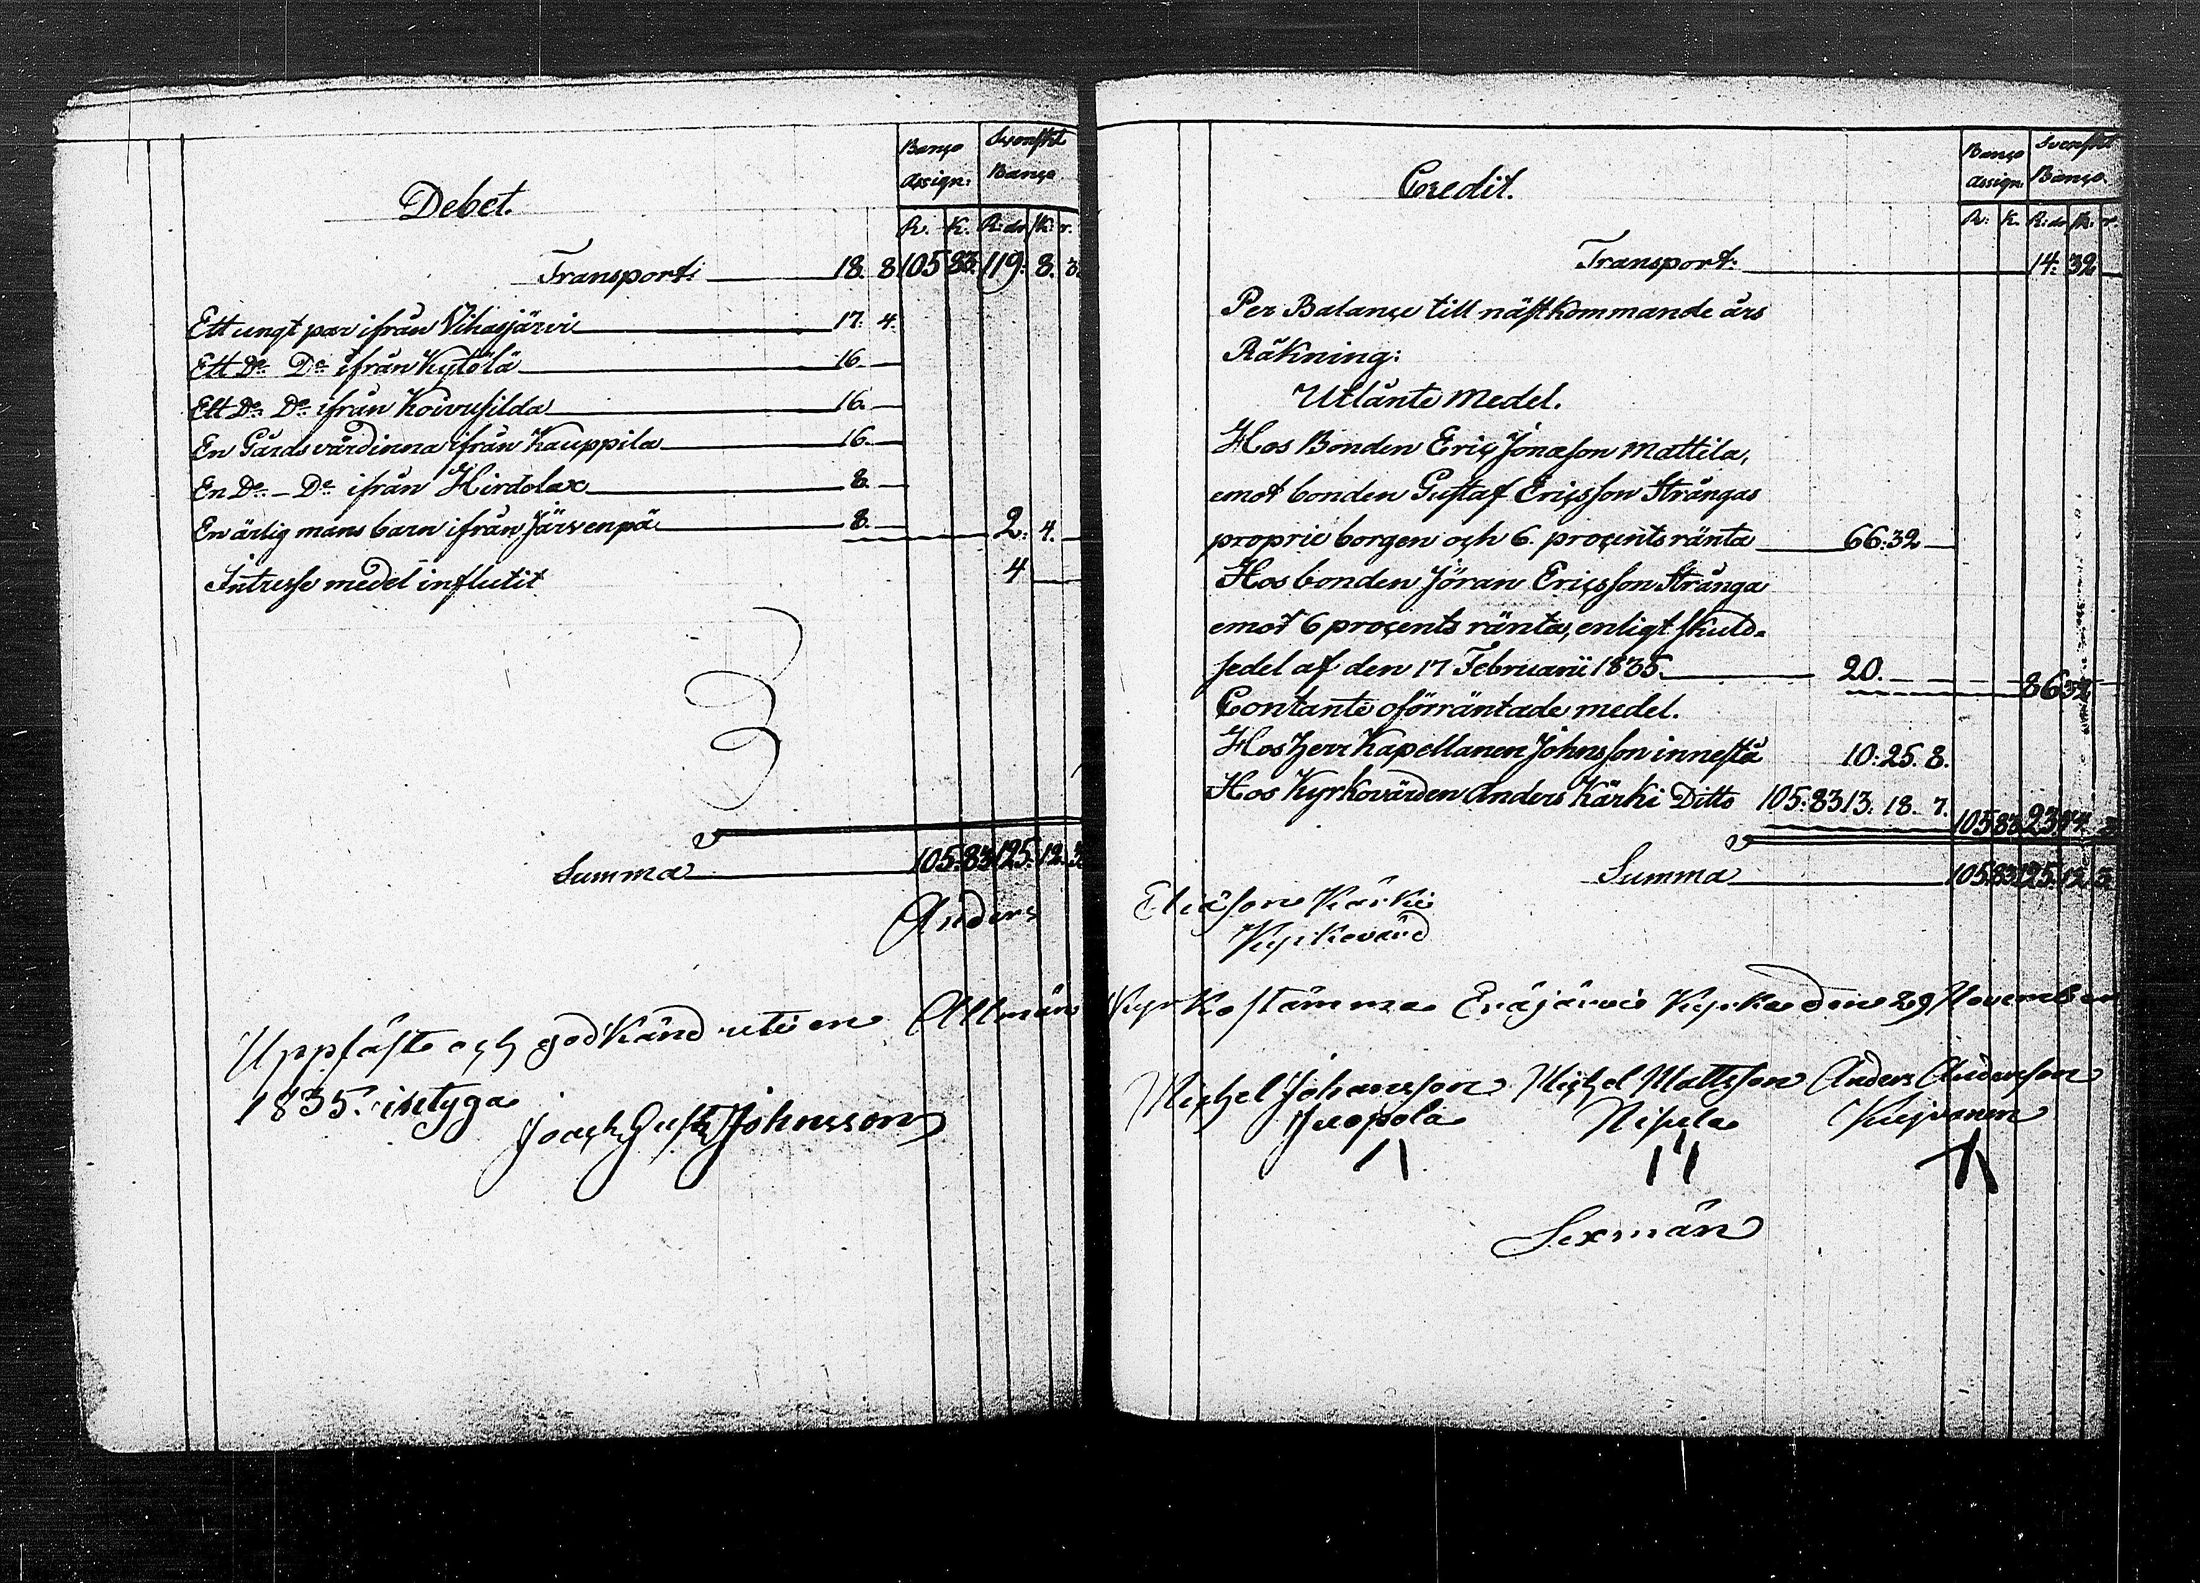 Banço Svenskt
Assign: Banço
Debet.
R. K. R:dr K: r.
Transport: 18. 8 105 83. 119. 8. 3.
Ett ungt par ifrån Vihasjärvi 17. 4.
Ett Do Do ifrån Kytölä 16.
Ett Do Do ifrån Koivusilda 16.
En Gårdsvärdinna ifrån Kauppila 16.
En Do Do ifrån Hirdolax 8.
En ärlig mans barn ifrån Järvenpä 8. 2. 4.
Intresse medel influtit 4
Summa 105. 83. 125. 12. 3
Anders
Uppläst och godkänd uti en Allmän
1835. intyga
Joach Gust Johnsson
Banço Svenskt
Assign: Banço.
Credit.
R: K. R:dr K: r.
Transport: 14. 32
Per Balance till nästkommande års
Räkning:
Utlånte Medel.
Hos Bonden Eriç Jonasson Mattila,
emot bonden Gustaf Ericsson Strångas
proprie borgen och 6. procents ränta 66:32
Hos bonden Jöran Ericsson Strånga
emot 6 procents ränta, enligt skuld-
sedel af den 17 Februarii 1835. 20. 86 32
Contante oförräntade medel.
Hos Herr Kapellanen Johnsson innestå 10:25. 8.
Hos Kyrkovärden Anders Kärki Ditto 105:83 13. 18. 7. 105 83 23 44 3
Summa 105. 83 125. 12. 3
Eliasson Kärki
Kyrkovärd
Kyrkostämma Eräjärvi Kyrka den 29 November
Michel Johansson Michel Mattsson Anders Andersson
Juopola Nipula
Sexmän